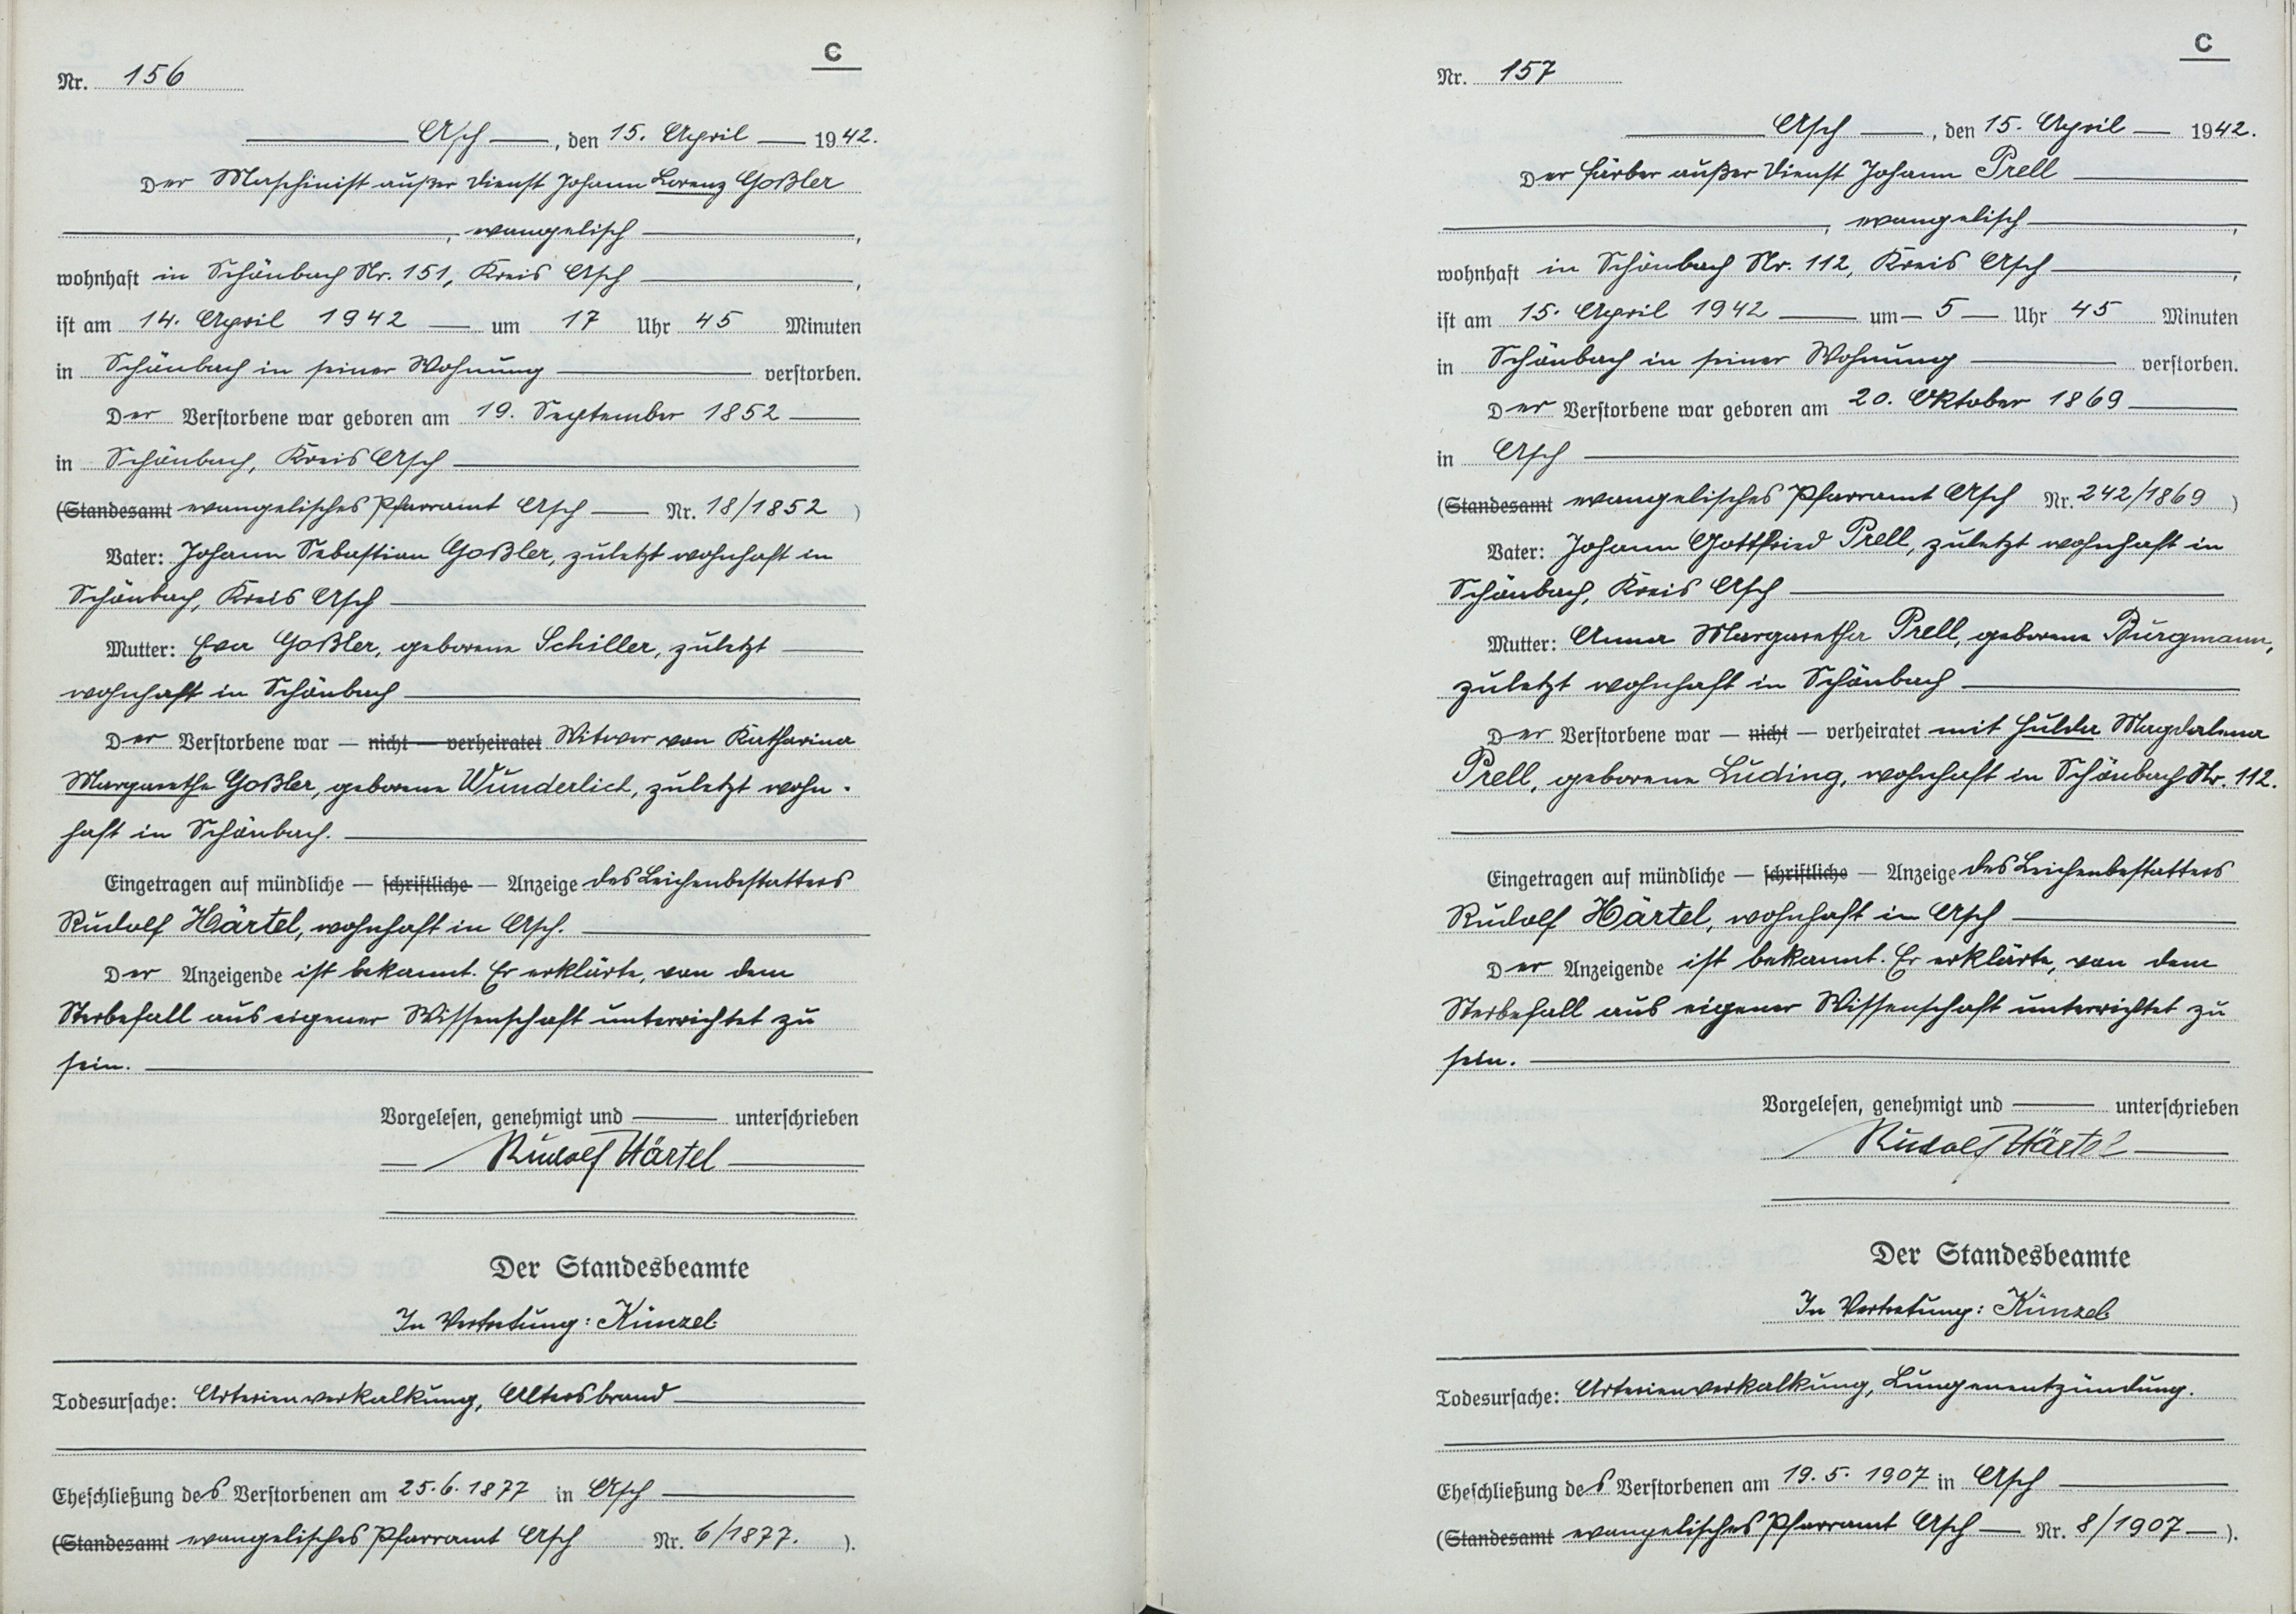 C
Nr. 156
Asch, den 15. April 1942.
Der Maschinist außer Dienst Johann Lorenz Goßler
, evangelisch,
wohnhaft in Schönbach Nr. 151, Kreis Asch,
ist am 14. April 1942 um 17 Uhr 45 Minuten
in Schönbach in seiner Wohnung verstorben.
Der Verstorbene war geboren am 19. September 1852
in Schönbach, Kreis Asch
(Standesamt evangelisches Pfarramt Asch Nr. 18/1852)
Vater: Johann Sebastian Goßler, zuletzt wohnhaft in
Schönbach, Kreis Asch
Mutter: Eva Goßler, geborene Schiller, zuletzt
wohnhaft in Schönbach
Der Verstorbene war — nicht — verheiratet Witwer von Katharina
Margarethe Goßler, geborene Wunderlich, zuletzt wohn-
haft in Schönbach.
Eingetragen auf mündliche — schriftliche — Anzeige des Leichenbestatters
Rudolf Härtel, wohnhaft in Asch.
Der Anzeigende ist bekannt. Er erklärte, von dem
Sterbefall aus eigener Wissenschaft unterrichtet zu
sein.
Vorgelesen, genehmigt und unterschrieben
Rudolf Härtel
Der Standesbeamte
In Vertretung: Künzel
Todesursache: Arterienverkalkung, Altersbrand
Eheschließung des Verstorbenen am 25.6.1877 in Asch
(Standesamt evangelisches Pfarramt Asch Nr. 6/1877.).
C
Nr. 157
Asch, den 15. April 1942.
Der Färber außer Dienst Johann Prell
, evangelisch,
wohnhaft in Schönbach Nr. 112, Kreis Asch,
ist am 15. April 1942 um 5 Uhr 45 Minuten
in Schönbach in seiner Wohnung verstorben.
Der Verstorbene war geboren am 20. Oktober 1869
in Asch
(Standesamt evangelisches Pfarramt Asch Nr. 242/1869)
Vater: Johann Gottfried Prell, zuletzt wohnhaft in
Schönbach, Kreis Asch
Mutter: Anna Margaretha Prell, geborene Burgmann,
zuletzt wohnhaft in Schönbach
Der Verstorbene war — nicht — verheiratet mit Hulda Magdalena
Prell, geborene Luding, wohnhaft in Schönbach Nr. 112.
Eingetragen auf mündliche — schriftliche — Anzeige des Leichenbestatters
Rudolf Härtel, wohnhaft in Asch
Der Anzeigende ist bekannt. Er erklärte, von dem
Sterbefall aus eigener Wissenschaft unterrichtet zu
sein.
Vorgelesen, genehmigt und unterschrieben
Rudolf Härtel
Der Standesbeamte
In Vertretung: Künzel
Todesursache: Arterienverkalkung, Lungenentzündung.
Eheschließung des Verstorbenen am 19.5.1907 in Asch
(Standesamt evangelisches Pfarramt Asch Nr. 8/1907).